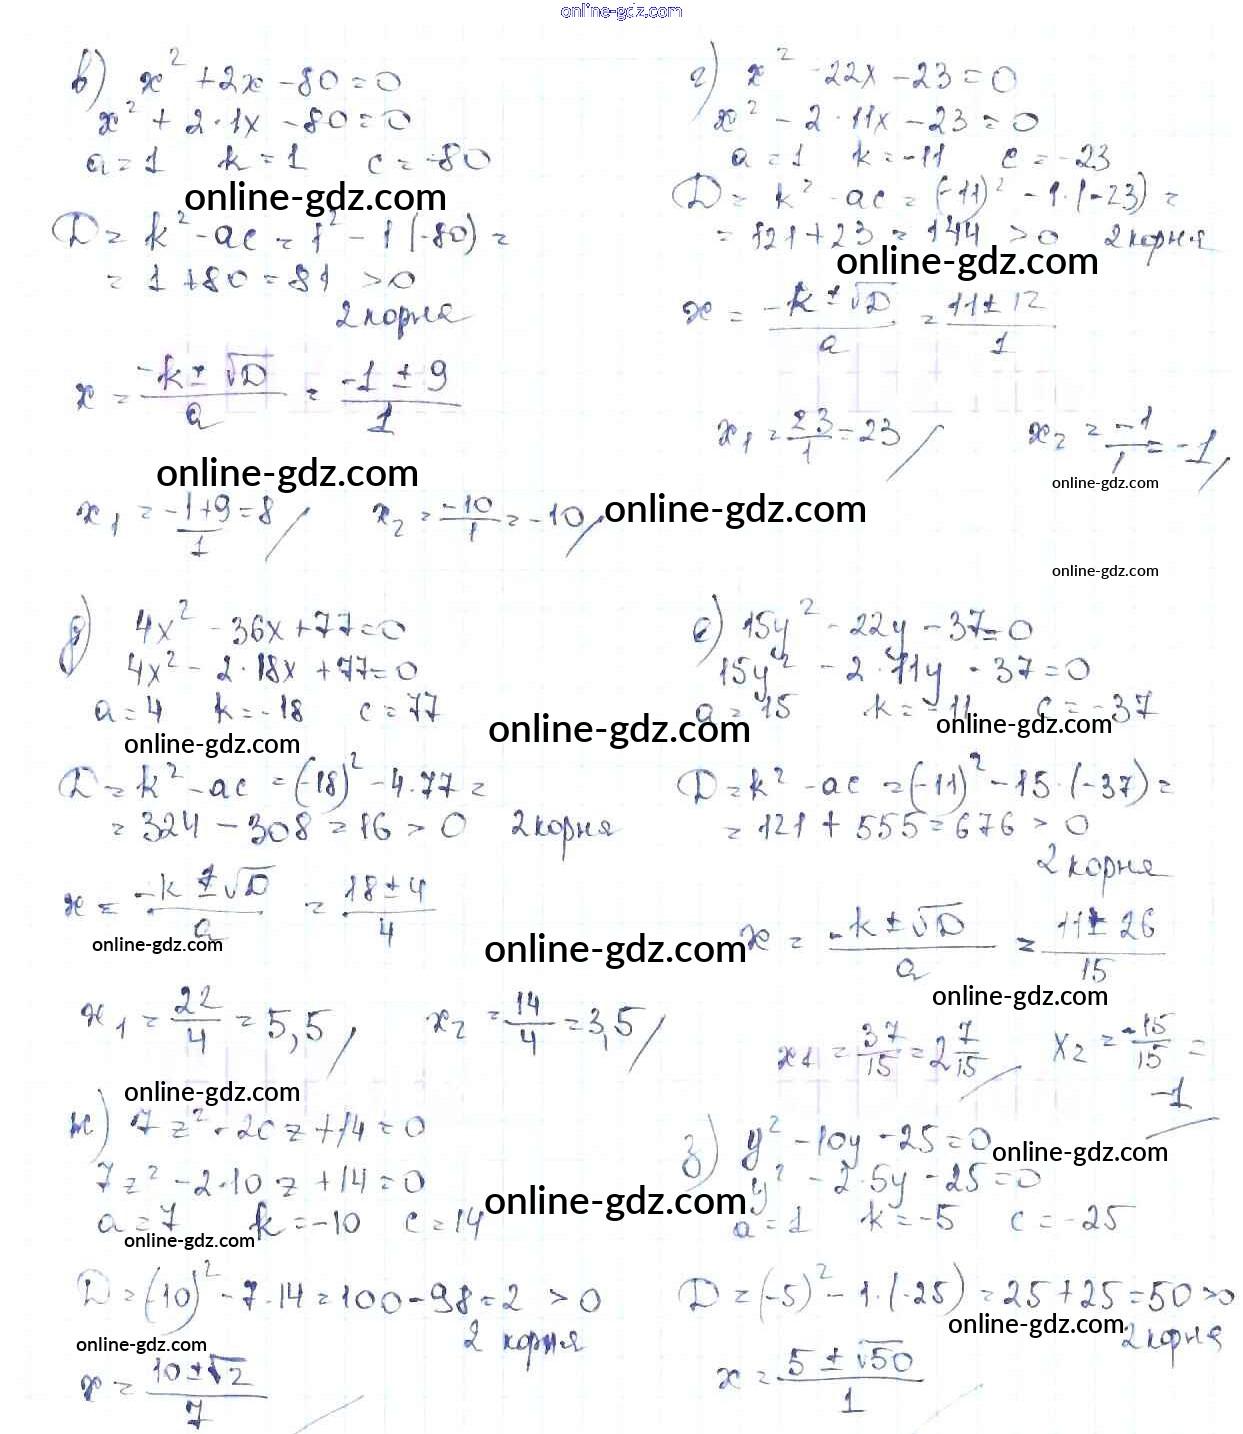 online-gdz.com
в) x² + 2x - 80 = 0
x² + 2·1x - 80 = 0
a = 1 k = 1 c = -80
online-gdz.com
D = k² - ac = 1² - 1(-80) =
= 1 + 80 = 81 > 0
2 корня
x = (-k ± √D)/a = (-1 ± 9)/1
online-gdz.com
x₁ = (-1+9)/1 = 8 x₂ = -10/1 = -10
online-gdz.com
г) x² - 22x - 23 = 0
x² - 2·11x - 23 = 0
a = 1 k = -11 c = -23
D = k² - ac = (-11)² - 1·(-23) =
= 121 + 23 = 144 > 0 2 корня
online-gdz.com
x = (-k ± √D)/a = (11 ± 12)/1
x₁ = 23/1 = 23 x₂ = -1/1 = -1
online-gdz.com
online-gdz.com
д) 4x² - 36x + 77 = 0
4x² - 2·18x + 77 = 0
a = 4 k = -18 c = 77
online-gdz.com
online-gdz.com
D = k² - ac = (-18)² - 4·77 =
= 324 - 308 = 16 > 0 2 корня
x = (-k ± √D)/a = (18 ± 4)/4
online-gdz.com
online-gdz.com
x₁ = 22/4 = 5,5 x₂ = 14/4 = 3,5
е) 15y² - 22y - 37 = 0
15y² - 2·11y - 37 = 0
a = 15 k = -11 c = -37
online-gdz.com
D = k² - ac = (-11)² - 15·(-37) =
= 121 + 555 = 676 > 0
2 корня
x = (-k ± √D)/a = (11 ± 26)/15
online-gdz.com
x₁ = 37/15 = 2 7/15 x₂ = -15/15 =
-1
online-gdz.com
ж) 7z² - 20z + 14 = 0
7z² - 2·10z + 14 = 0
a = 7 k = -10 c = 14
online-gdz.com
online-gdz.com
D = (-10)² - 7·14 = 100 - 98 = 2 > 0
2 корня
online-gdz.com
x = (10 ± √2)/7
з) y² - 10y - 25 = 0
online-gdz.com
y² - 2·5y - 25 = 0
a = 1 k = -5 c = -25
D = (-5)² - 1·(-25) = 25 + 25 = 50 > 0
online-gdz.com
2 корня
x = (5 ± √50)/1